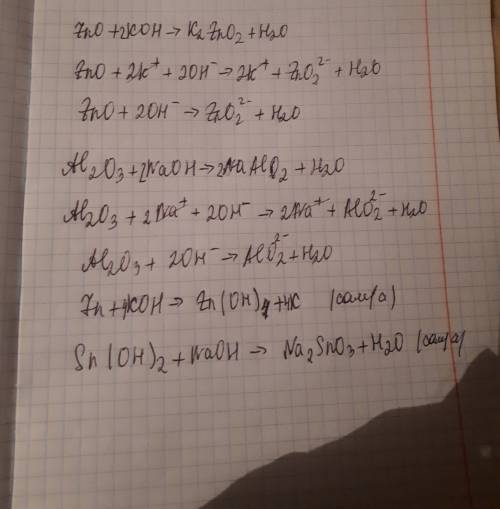 ZnO + 2KOH → K₂ZnO₂ + H₂O
ZnO + 2K⁺ + 2OH⁻ → 2K⁺ + ZnO₂²⁻ + H₂O
ZnO + 2OH⁻ → ZnO₂²⁻ + H₂O
Al₂O₃ + 2NaOH → 2NaAlO₂ + H₂O
Al₂O₃ + 2Na⁺ + 2OH⁻ → 2Na⁺ + AlO₂²⁻ + H₂O
Al₂O₃ + 2OH⁻ → AlO₂²⁻ + H₂O
Zn + 4KOH → Zn(OH)₄ + 4K (сам/а)
Sn(OH)₂ + NaOH → Na₂SnO₃ + H₂O (сам/а)